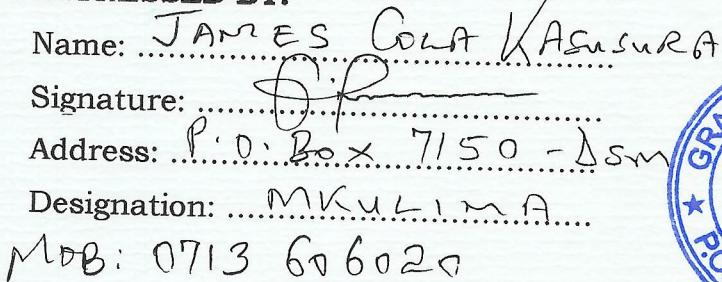 Name: JAMES COLA KASUSURA
Signature:
Address: P.O. Box 7150 - Dsm
Designation: MKULIMA
MOB: 0713 606020
GRA
★ P.O